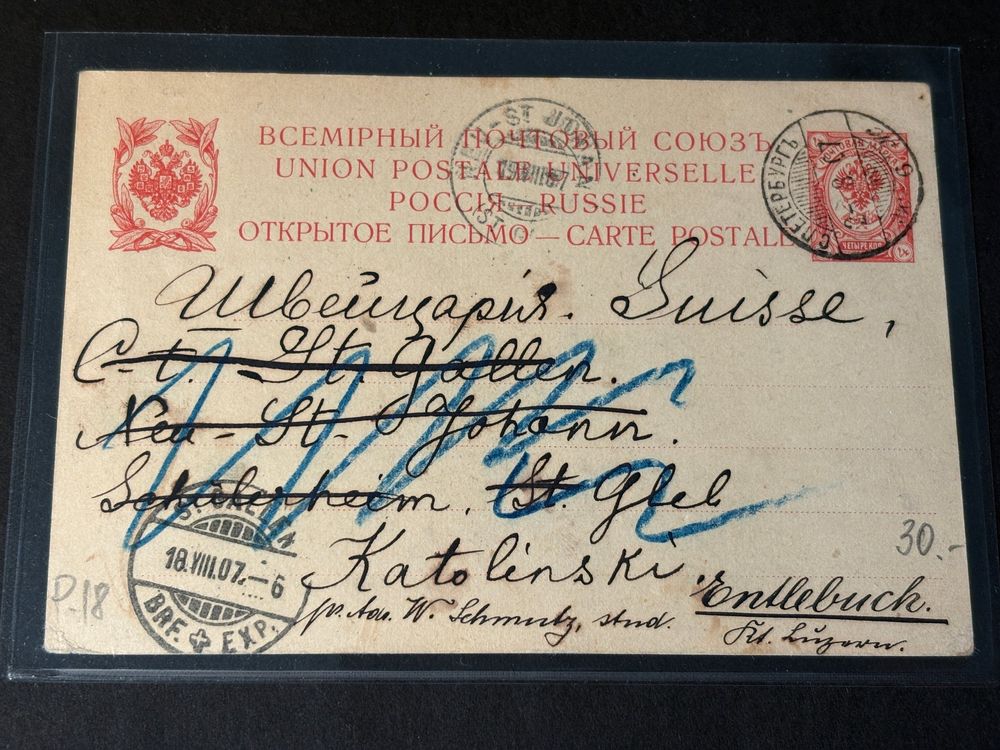 ВСЕМІРНЫЙ ПОЧТОВЫЙ СОЮЗЪ
UNION POSTALE UNIVERSELLE
РОССІЯ RUSSIE
ОТКРЫТОЕ ПИСЬМО — CARTE POSTALE
С.ПЕТЕРБУРГЪ
ЧЕТЫРЕ КОП
Швейцарія. Suisse,
C-t. St. Gallen.
Neu-St-Johann.
Schülerheim, St. Gleb
Katolinski.
p. Adr. W. Schmutz, stud.
Entlebuch.
Kt. Luzern.
ST. GALLEN
18.VIII.07.–6
BRF. EXP.
30.-
P-18